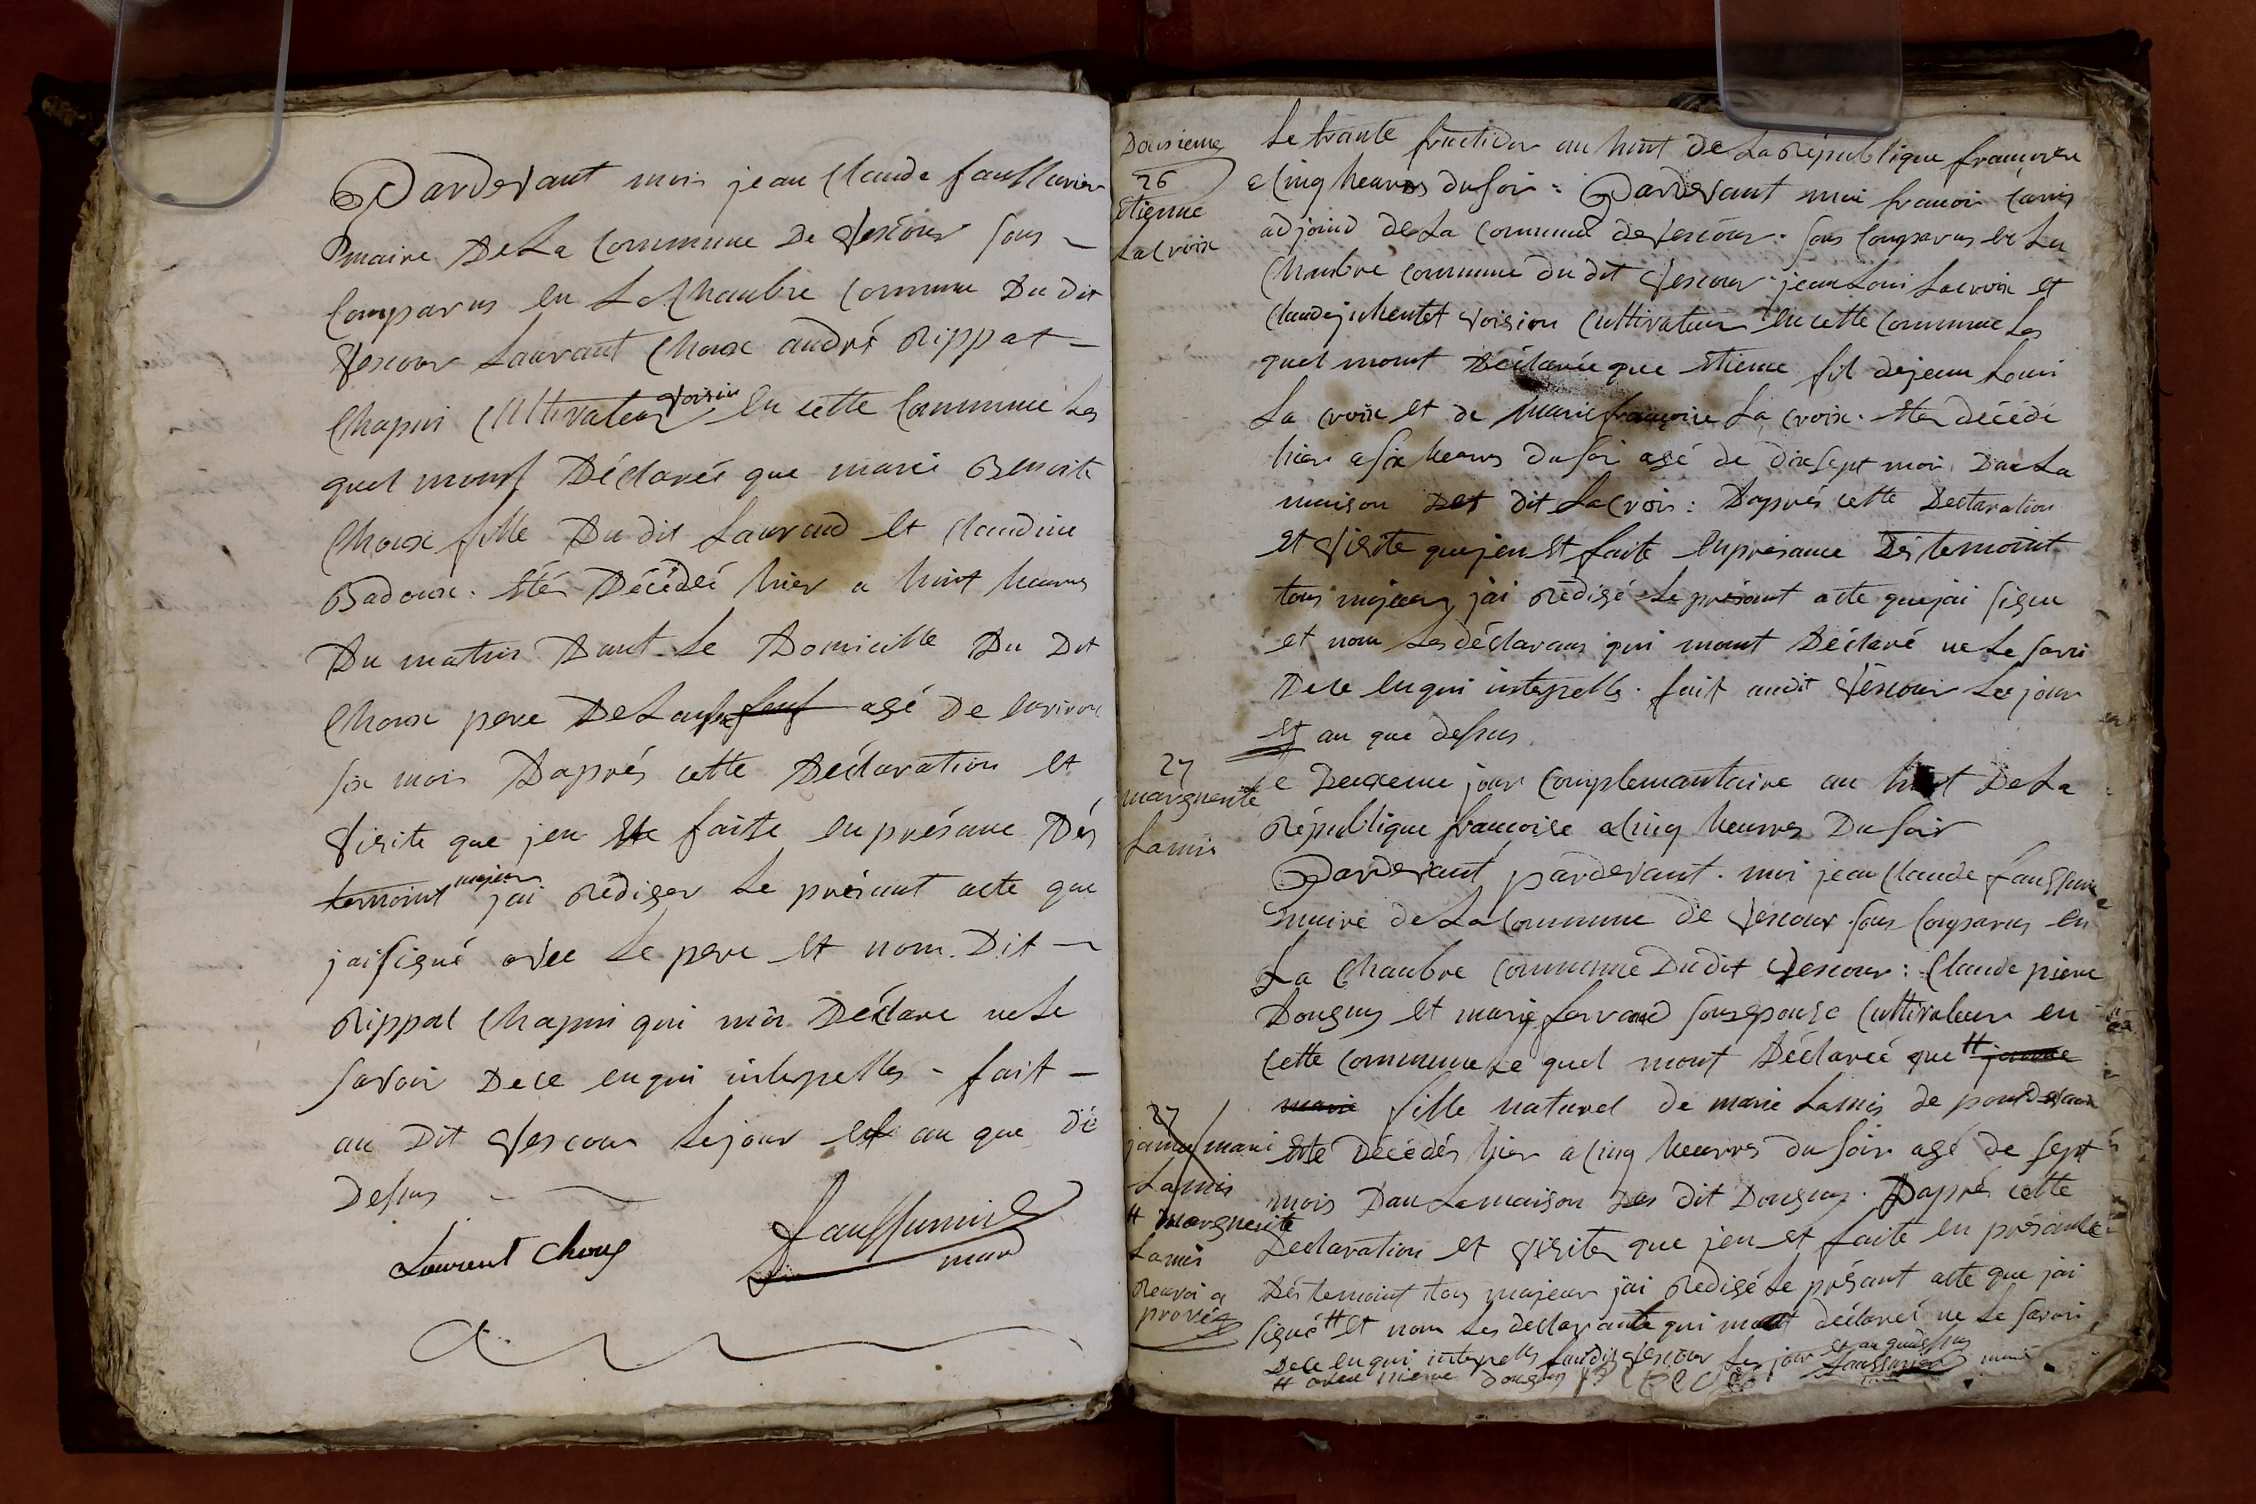 Pardevant moi jean Claude faussurier
maire De La Commune De Vescour sous
Comparus en La Chanbre Commune Du dit
Vescour Laurant Choux andré Rippat
Chapui Cultivateur voisin en cette Commune Les
quel mont Déclareé que marie Benoite
Choux fille Du dit Laurand et Claudine
Badoux. Eté Décédeé hier a huit heures
Du matin Dant Le Domicille Du Dit
Choux pere De Lanfant agé De Environ
six mois Daprés cette Déclaration et
Visite que jen et faite en présance Dés
temoint majeur jai Rédiger Le présant acte que
jai signé avec Le pere et nom Dit
Rippat Chapui qui ma Déclare ne Le
savoir De ce enqui interpellés - fait
au Dit Vescour Le jour et an que dé
Desus
Laurent Choux
faussurier
mair
Dousieme
26
Etienne
La Croix
Le trante fructidor an huit De La République françoise
a Cinq heures du soir : Pardevant moi francoi
adjoind de La Commune de Vescour. sous Comparus en La
Chanbre Commune du dit Vescour jean Loui Lacroix et
Claude voision Cultivateur en cette Commune Les
quel mont Déclareé que Etiene fil de jean Loui
La croix et de Marie françoise La croix. Eté décédé
hier a six heures du soir agé de dix sept moi Dan La
maison Det dit La Croix : Daprés cette Declaration
et Visite que jen et faite en présance Des temoint
tous majeur, jai Rédigé Le présant acte que jai signe
et nom Les déclarans qui mont Déclaré ne Le savoi
De ce enqui interpellé. fait audit Vescour Les jour
et an que desus
27
marguerite
Lamis
Le Deuxieme jour Complemantaire an huit De La
République françoise a Cinq heures Du soir
Pardevant pardevant. moi jean Claude faussurie
maire de La Commune de Vescour sous Comparus en
La Chanbre Commune Du dit Vescour : Claude piere
Donguy et marie ferrand son epouse Cultivateur en
cette Commune Le quel mont Déclareé que # janne
marie fille naturel de marie Lamis de pont de vaux
Eté Décédés hier a Cinq heures du soir agé de sept
mois Dan La maison Des dit Donguy. Daprés cette
Declaration et Visite que jen et faite en présance
Dés temoint tous majeur jai Redigé Le présant acte que jai
signé # et nom Les déclarante qui mont déclareé ne Le savoir
De ce enqui interpellé fait audit Vescour Les jour et an que desus
# avec pierre Donguy faussurier mair
27
janne marie
Lamis
# marguerite
Lamis
Renvoi a
prové